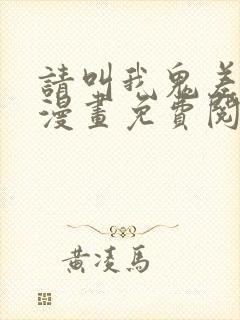 請叫我鬼差
漫畫免費閱
黃凌馬